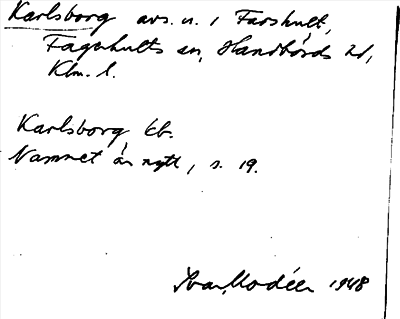 Karlsborg avs. u. 1 Farshult,
Fagerhults sn, Handbörds hd,
Klm. l.
Karlsborg Eb.
Namnet är nytt, s. 19.
Ivar Modéer 1948